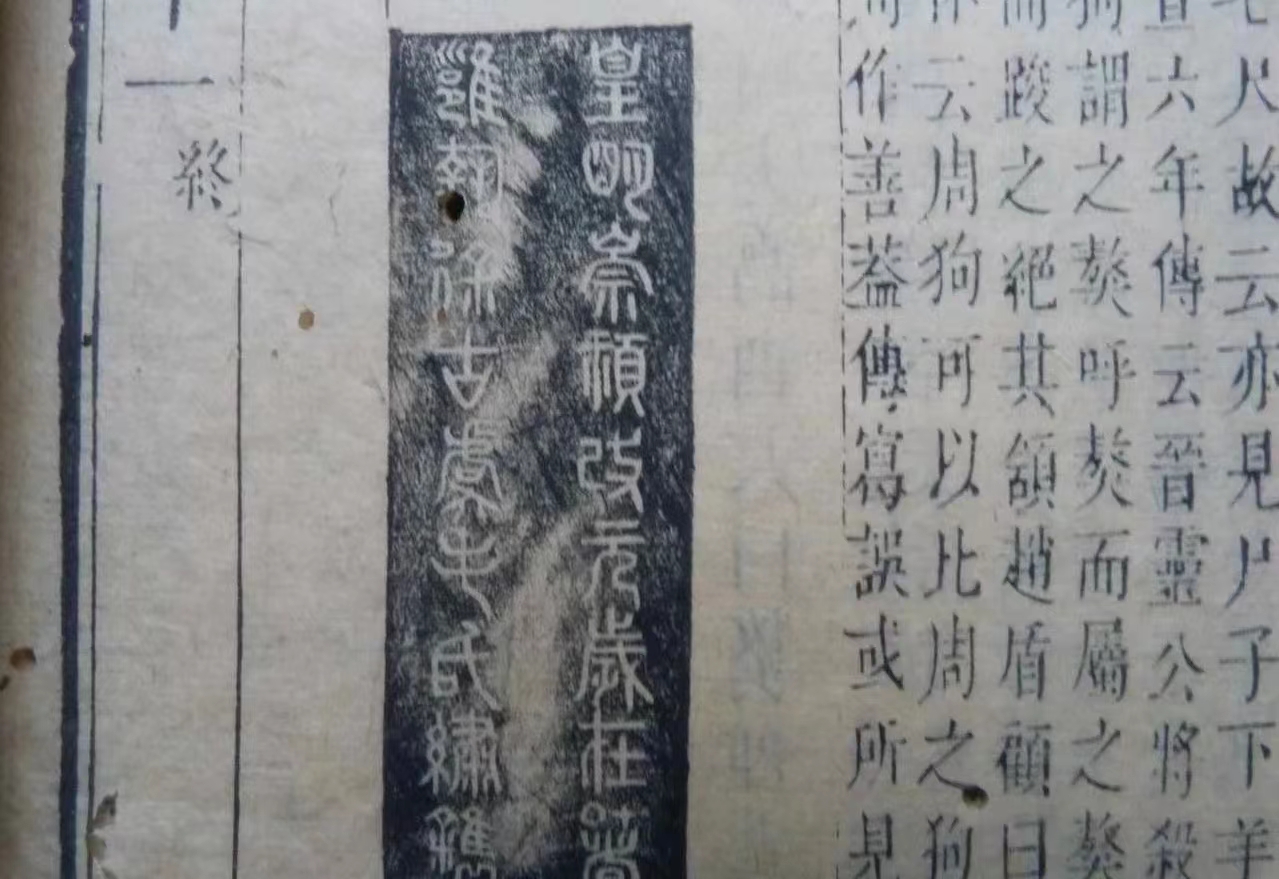 七尺故云亦見尸子下羊
宣六年傳云晉靈公將殺
狗謂之獒呼獒而屬之獒
而踆之絕其頷趙盾顧曰
作云周狗可以比周之狗
作善葢傳寫誤或所見
皇明崇禎改元歲在著
雝執徐古虞毛氏繡鐫
十一終